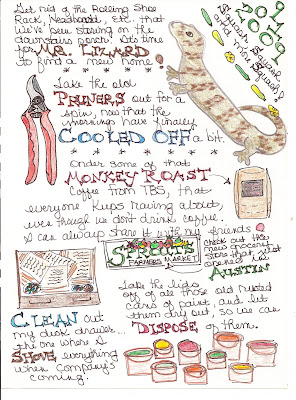 Get rid of the Rolling Shoe
Rack, Headboard, etc. that
we've been storing on the
downstairs porch! It's time
for MR. LIZARD
to find a new home!
9/21/2007
Squish, Squash
and more Squash!
Take the old
PRUNERS out for a
spin, now that the
mornings have finally
COOLED OFF a bit.
Order some of that
MONKEY ROAST
Coffee from TBS, that
everyone keeps raving about,
even though we don't drink coffee.
I can always share it with my friends
SPROUTS
FARMERS MARKET
Check out this
new grocery
store that just
opened in
AUSTIN
CLEAN out
my desk drawer...
the one where I
SHOVE everything
when company's
coming!
Take the lids
off of all those old rusted
cans of paint, and let
them dry out, so we can
DISPOSE of them.